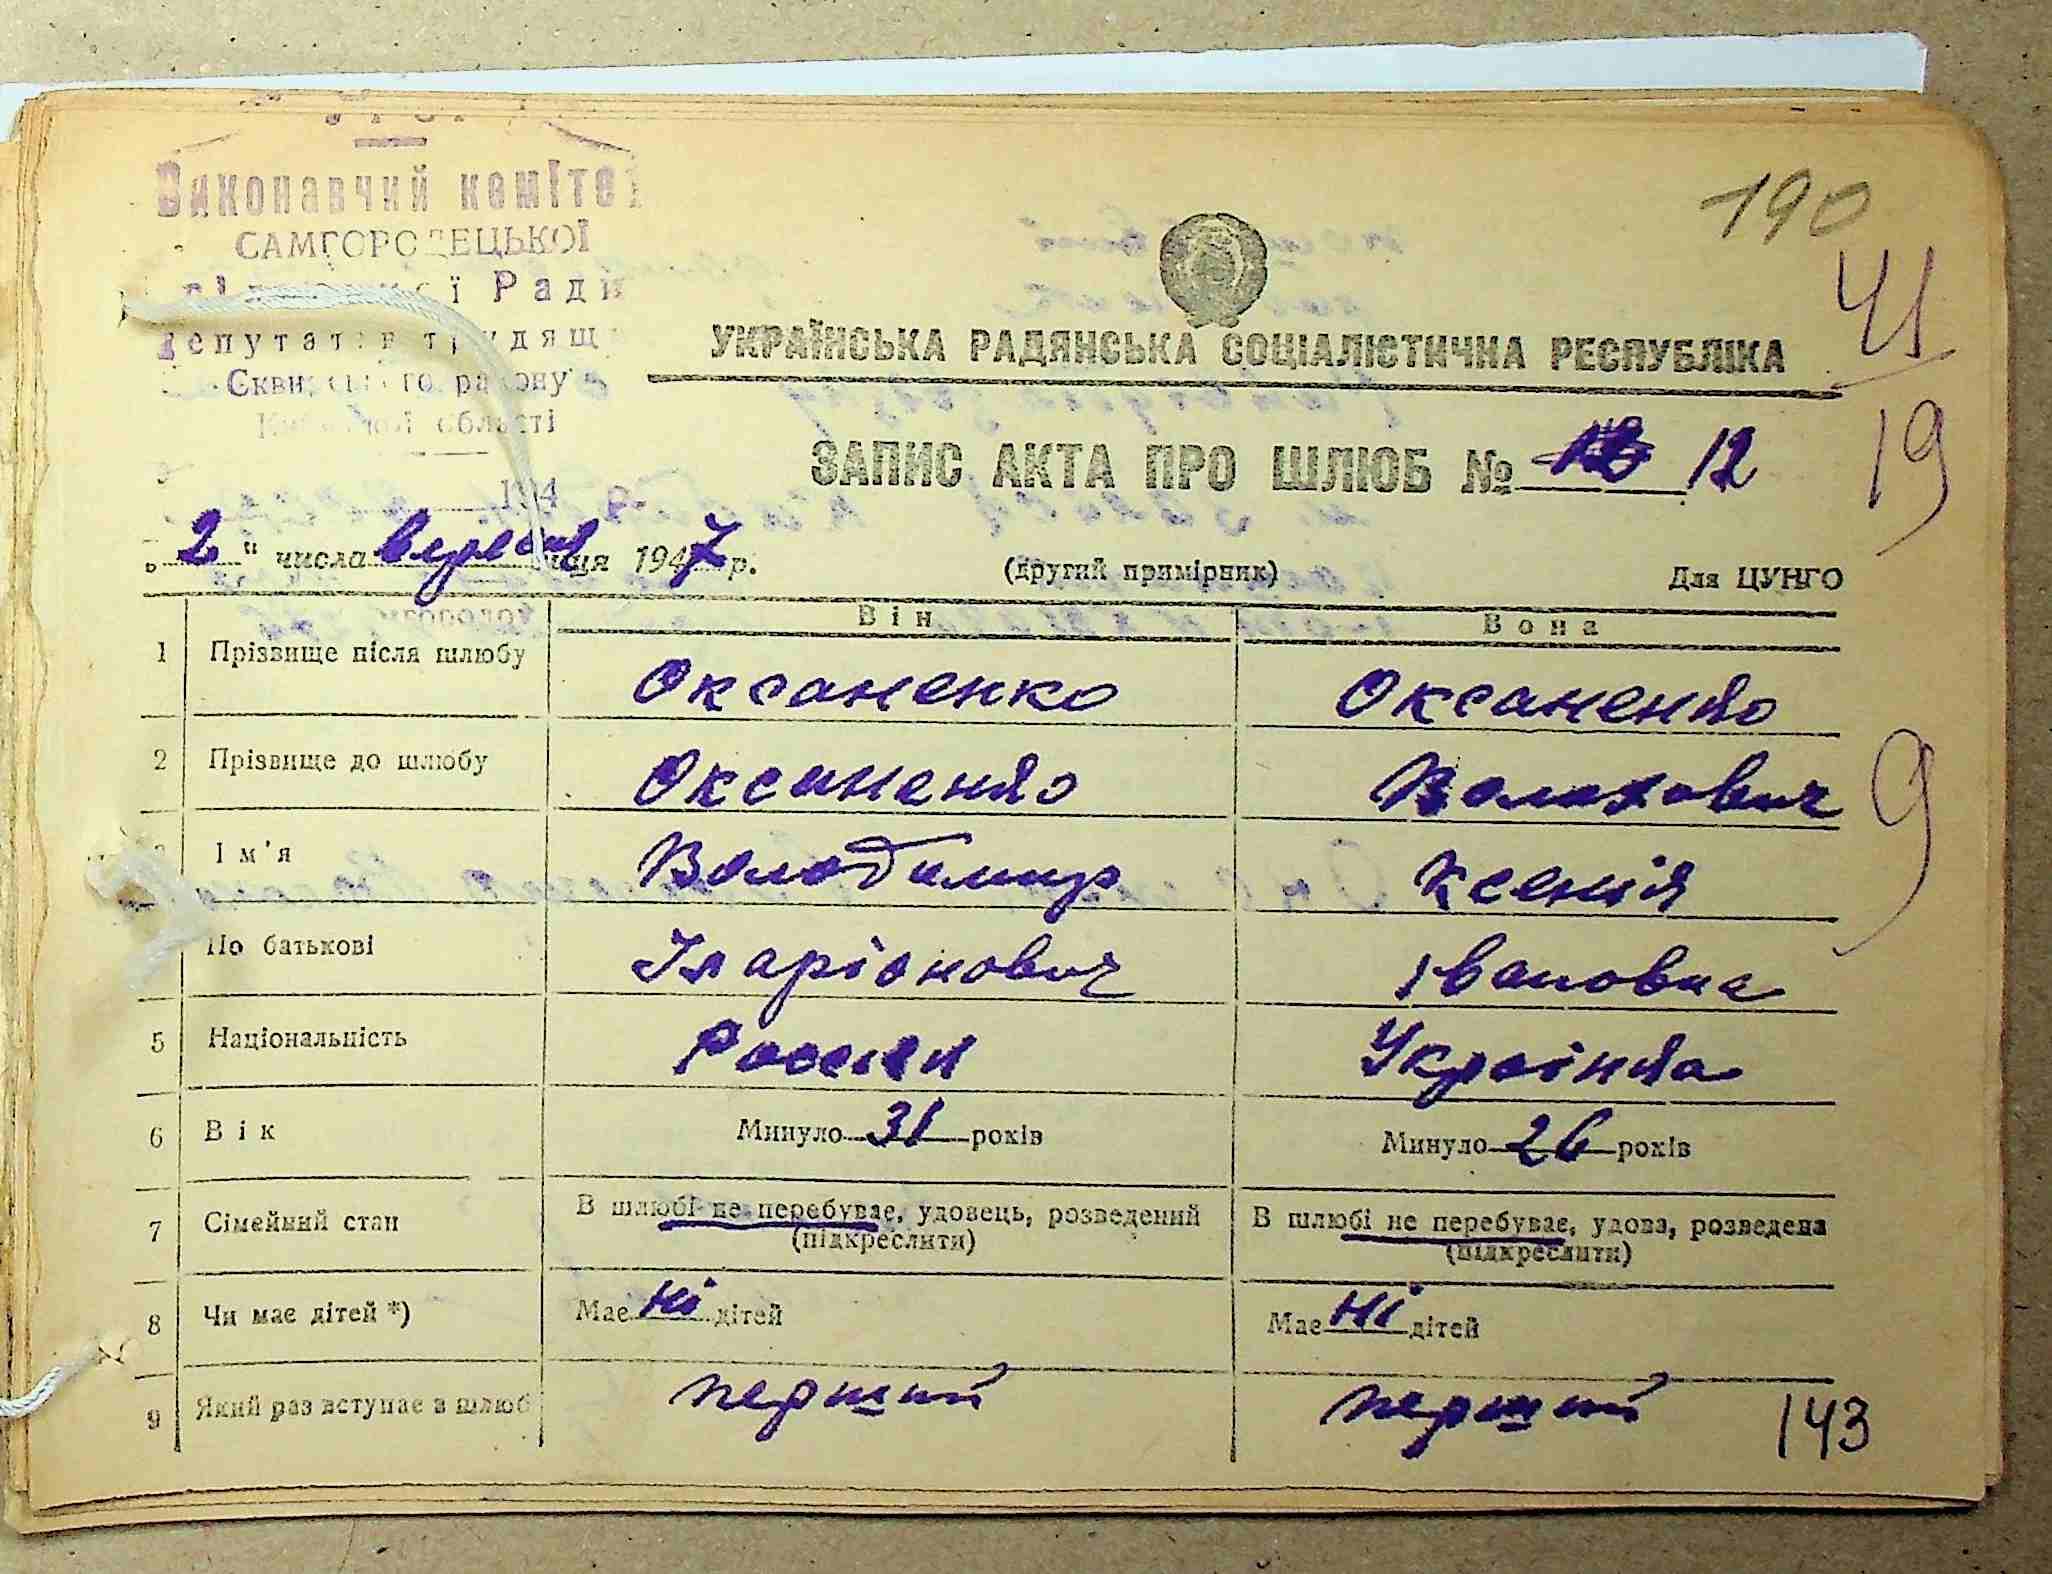 Виконавчий комітет
САМГОРОДЕЦЬКОЇ
Ради
депутатів трудящ
Сквирського району
Київської області
194
190
41
19
УКРАЇНСЬКА РАДЯНСЬКА СОЦІАЛІСТИЧНА РЕСПУБЛІКА
ЗАПИС АКТА ПРО ШЛЮБ № 12
„2" числа вересня місяця 1947 р.
(другий примірник)
Для ЦУНГО
Він
Вона
1 Прізвище після шлюбу Оксаненко Оксаненко
2 Прізвище до шлюбу Оксаненко
9
Ім'я Володимир Ксенія
По батькові Іларіонович Івановна
5 Національність Україніка
6 Вік Минуло 31 років Минуло 26 років
7 Сімейний стан В шлюбі не перебуває, удовець, розведений В шлюбі не перебуває, удова, розведена
(підкреслити) (підкреслити)
8 Чи має дітей *) Має ні дітей Має ні дітей
9 Який раз вступає в шлюб перший перший
143